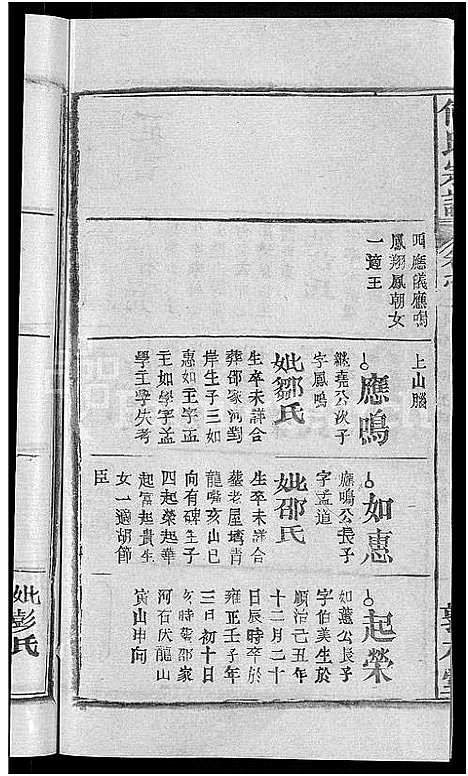 四應儀應鳴
鳳翔鳳朝女
一適王
上山腦
應鳴
繼堯公次子
字鳳鳴
妣鄒氏
生卒未詳合
葬邵家河對
岸生子三如
惠如王字孟
主如學字孟
學王學失考
如惠
應鳴公長子
字孟道
妣邵氏
生卒未詳合
塟老屋塆青
龍嘴亥山巳
向有碑生子
四起榮起華
起富起貴生
女一適胡節
臣
起榮
如蕙公長子
字伯美生於
順治己丑年
十二月二十
日辰時卒於
雍正壬子年
三日初十日
亥時葬邵家
河石伏龍山
寅山申向
妣彭氏